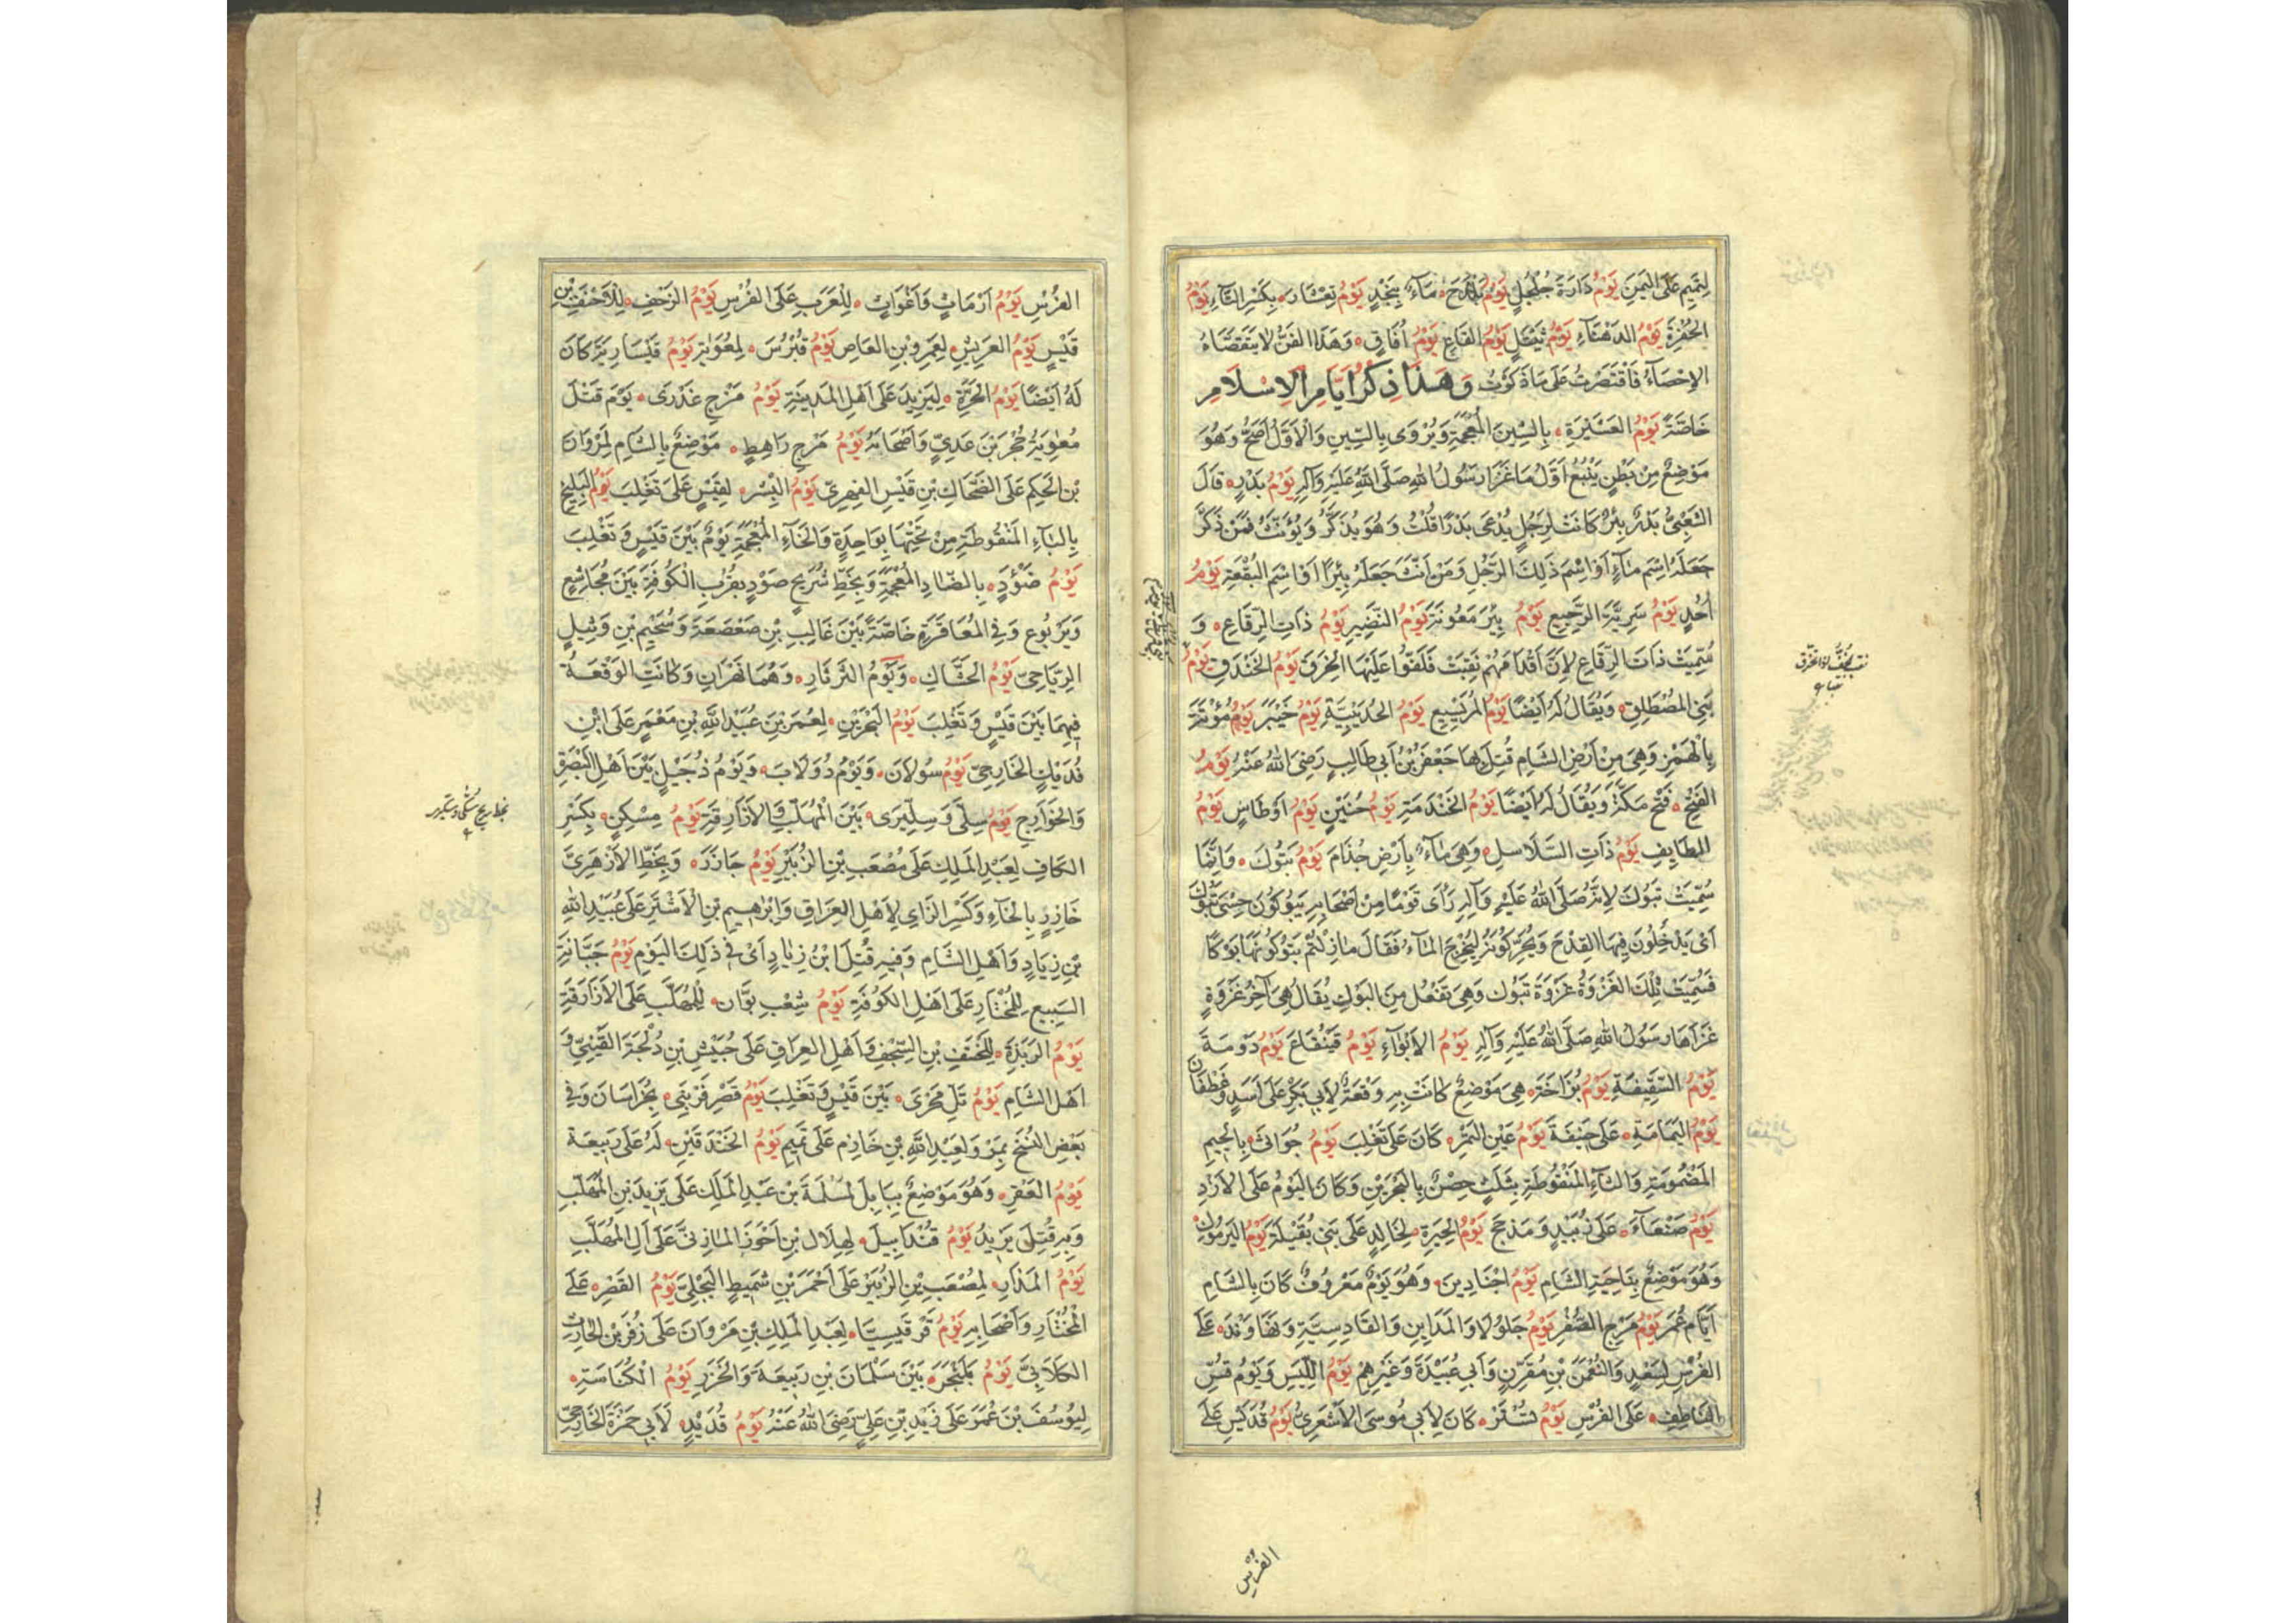 لِتَمِيمٍ عَلَى اليَمَنِ يَوْمُ دَارَةَ جُلْجُلٍ يَوْمُ بَلْدَحَ مَاءٌ بِنَجْدٍ يَوْمُ تِعْشَار بِكَسْرِ التَّاءِ يَوْمُ
الحُفْرَةِ يَوْمُ الدَّهْنَاءِ يَوْمُ ثَيْتَلٍ يَوْمُ القَاعِ يَوْمُ أُفَاقٍ وَهَذَا الفَنُّ لَا يَتَقَصَّاهُ
الإِحْصَاءُ فَاقْتَصَرْتُ عَلَى مَا ذَكَرْتُ وَهَذَا ذِكْرُ أَيَّامِ الإِسْلَامِ
خَاصَّةً يَوْمُ العَشِيرَةِ بِالشِّينِ المُعْجَمَةِ وَيُرْوَى بِالسِّينِ وَالأَوَّلُ أَصَحُّ وَهُوَ
مَوْضِعٌ مِنْ بَطْنِ يَنْبُعَ أَوَّلُ مَا غَزَا رَسُولُ اللهِ صَلَّى اللهُ عَلَيْهِ وَآلِهِ يَوْمُ بَدْرٍ قَالَ
الشَّعْبِيُّ بَدْرٌ بِئْرٌ كَانَتْ لِرَجُلٍ يُدْعَى بَدْرًا قُلْتُ وَهُوَ يُذَكَّرُ وَيُؤَنَّثُ فَمَنْ ذَكَّرَ
جَعَلَهُ اِسْمَ مَاءٍ أَوِ اسْمَ ذَلِكَ الرَّجُلِ وَمَنْ أَنَّثَ جَعَلَهُ بِئْرًا أَوِ اسْمَ البُقْعَةِ يَوْمُ
أُحُدٍ يَوْمُ سَرِيَّةِ الرَّجِيعِ يَوْمُ بِئْرِ مَعُونَةَ يَوْمُ النَّضِيرِ يَوْمُ ذَاتِ الرِّقَاعِ وَ
سُمِّيَتْ ذَاتَ الرِّقَاعِ لِأَنَّ أَقْدَامَهُمْ نَقِبَتْ فَلَفُّوا عَلَيْهَا الخِرَقَ يَوْمُ الخَنْدَقِ يَوْمُ
بَنِي المُصْطَلِقِ وَيُقَالُ لَهُ أَيْضًا يَوْمُ المُرَيْسِيعِ يَوْمُ الحُدَيْبِيَّةِ يَوْمُ خَيْبَرَ يَوْمُ مُؤْتَةَ
بِالْهَمْزِ وَهِيَ مِنْ أَرْضِ الشَّامِ قُتِلَ بِهَا جَعْفَرُ بْنُ أَبِي طَالِبٍ رَضِيَ اللهُ عَنْهُ يَوْمُ
الفَتْحِ فَتْحُ مَكَّةَ وَيُقَالُ لَهُ أَيْضًا يَوْمُ الخَنْدَمَةِ يَوْمُ حُنَيْنٍ يَوْمُ أَوْطَاسٍ يَوْمُ
الطَّايِفِ يَوْمُ ذَاتِ السَّلَاسِلِ وَهِيَ مَاءٌ بِأَرْضِ جُذَامَ يَوْمُ تَبُوكَ وَإِنَّمَا
سُمِّيَتْ تَبُوكَ لِأَنَّهُ صَلَّى اللهُ عَلَيْهِ وَآلِهِ رَأَى قَوْمًا مِنْ أَصْحَابِهِ يَبُوكُونَ حِسْيَ تَبُوكَ
أَيْ يُدْخِلُونَ فِيهَا القِدْحَ وَيُحَرِّكُونَهُ لِيَخْرُجَ المَاءُ فَقَالَ مَا زِلْتُمْ تَبُوكُونَهَا بَوْكًا
فَسُمِّيَتْ تِلْكَ الغَزْوَةُ غَزْوَةَ تَبُوك وَهِيَ تَفْعُلُ مِنَ البَوْكِ يُقَالُ هِيَ آخِرُ غَزْوَةٍ
غَزَاهَا رَسُولُ اللهِ صَلَّى اللهُ عَلَيْهِ وَآلِهِ يَوْمُ الأَبْوَاءِ يَوْمُ قَيْنُقَاعَ يَوْمُ دَوْمَةَ
يَوْمُ السَّقِيفَةِ يَوْمُ بُزَاخَةَ هِيَ مَوْضِعٌ كَانَتْ بِهِ وَقْعَةٌ لِأَبِي بَكْرٍ عَلَى أَسَدٍ وَغَطْفَان
يَوْمُ اليَمَامَةِ عَلَى حَنِيفَةَ يَوْمُ عَيْنِ التَّمْرِ كَانَ عَلَى تَغْلِبَ يَوْمُ جُوَاثَى بِالْجِيمِ
المَضْمُومَةِ وَالثَّاءِ المَنْقُوطَةِ بِثَلَثٍ حِصْنٌ بِالبَحْرَيْنِ وَكَانَ اليَوْمُ عَلَى الأَزْدِ
يَوْمُ صَنْعَاءَ عَلَى زُبَيْدٍ وَمَذْحِجَ يَوْمُ الحِيرَةِ لِخَالِدٍ عَلَى بَنِي بُقَيْلَةَ يَوْمُ اليَرْمُوكِ
وَهُوَ مَوْضِعٌ بِنَاحِيَةِ الشَّامِ يَوْمُ أَجْنَادِينَ وَهُوَ يَوْمٌ مَعْرُوفٌ كَانَ بِالشَّامِ
أَيَّامَ عُمَرَ يَوْمُ مَرْجِ الصُّفَّرِ يَوْمُ جَلُولَا وَالمَدَايِنِ وَالقَادِسِيَّةِ وَنَهَاوَنْدَ عَلَى
الفُرْسِ لِسَعْدٍ وَالنُّعْمَنِ بْنِ مُقَرِّنٍ وَأَبِي عُبَيْدَةَ وَغَيْرِهِمْ يَوْمُ أُلَّيْسَ وَيَوْمُ قُسِّ
النَّاطِفِ عَلَى الفُرْسِ يَوْمُ تُسْتَرَ كَانَ لِأَبِي مُوسَى الأَشْعَرِيِّ يَوْمُ قُدَيْسٍ عَلَى
الفُرْسِ
الفُرْسِ يَوْمُ أَرْمَاثٍ وَأَغْوَاثٍ لِلْعَرَبِ عَلَى الفُرْسِ يَوْمُ الزَّحْفِ لِلأَحْنَفِ بْنِ
قَيْسٍ يَوْمُ العَرِيشِ لِعَمْرِو بْنِ العَاصِ يَوْمُ قُبْرُسَ لِمُعَوِيَةَ يَوْمُ قَيْسَارِيَّةَ كَانَ
لَهُ أَيْضًا يَوْمُ الحَرَّةِ لِيَزِيدَ عَلَى أَهْلِ المَدِينَةِ يَوْمُ مَرْجِ عَذْرَى يَوْمَ قَتْلِ
مُعَوِيَةَ حُجْرَ بْنَ عَدِيٍّ وَأَصْحَابَهُ يَوْمُ مَرْجِ رَاهِطٍ مَوْضِعٌ بِالشَّامِ لِمَرْوَانَ
بْنِ الحَكِمِ عَلَى الضَّحَّاكِ بْنِ قَيْسٍ الفِهْرِيِّ يَوْمُ البِشْرِ لِقَيْسٍ عَلَى تَغْلِبَ يَوْمُ البَلِيخِ
بِالبَاءِ المَنْقُوطَةِ مِنْ تَحْتِهَا بِوَاحِدَةٍ وَالخَاءِ المُعْجَمَةِ يَوْمٌ بَيْنَ قَيْسٍ وَتَغْلِبَ
يَوْمُ ضَوْءَدٍ بِالضَّادِ المُعْجَمَةِ وَبِخَطِّ شُرَيْحٍ صَوْدٍ بِقُرْبِ الكُوفَةِ بَيْنَ مُجَاشِعٍ
وَيَرْبُوعٍ وَفِي المُعَاقَرَةِ خَاصَّةً بَيْنَ غَالِبِ بْنِ صَعْصَعَةَ وَسُحَيْمِ بْنِ وَثِيلٍ
الرِّيَاحِيِّ يَوْمُ الحَشَّاكِ وَيَوْمُ الثَّرْثَارِ وَهُمَا نَهْرَانِ وَكَانَتِ الوَقْعَةُ
فِيهِمَا بَيْنَ قَيْسٍ وَتَغْلِبَ يَوْمُ البَحْرَيْنِ لِعُمَرَ بْنِ عُبَيْدِ اللَّهِ بْنِ مَعْمَرٍ عَلَى ابْنِ
فُدَيْكٍ الخَارِجِيِّ يَوْمُ سُولَانَ وَيَوْمُ دُولَابَ وَيَوْمُ دُجَيْلٍ بَيْنَ أَهْلِ البَصْرَةِ
وَالخَوَارِجِ يَوْمُ سِلَّى وَسِلِّبْرَى بَيْنَ المُهَلَّبِ وَالأَزَارِقَةِ يَوْمُ مِسْكِنٍ بِكَسْرِ
الكَافِ لِعَبْدِ المَلِكِ عَلَى مُصْعَبِ بْنِ الزُّبَيْرِ يَوْمُ جَازَرَ وَبِخَطِّ الأَزْهَرِيِّ
خَازِرٍ بِالخَاءِ وَكَسْرِ الزَّايِ لِأَهْلِ العِرَاقِ وَإِبْرَهِيمَ بْنِ الأَشْتَرِ عَلَى عُبَيْدِ اللهِ
بْنِ زِيَادٍ وَأَهْلِ الشَّامِ وَفِيهِ قُتِلَ ابْنُ زِيَادٍ أَيْ فِي ذَلِكَ اليَوْمِ يَوْمُ جَبَّانَةِ
السَّبِيعِ لِلْمُخْتَارِ عَلَى أَهْلِ الكُوفَةِ يَوْمُ شِعْبِ بَوَّانَ لِلْمُهَلَّبِ عَلَى الأَزَارِقَةِ
يَوْمُ الرَّبَذَةِ لِلْحَنْتَفِ بْنِ السِّجْفِ وَأَهْلِ العِرَاقِ عَلَى حُبَيْشِ بْنِ دُلْجَةَ القَيْنِيِّ وَ
أَهْلِ الشَّامِ يَوْمُ تَلِّ مَجْزَى بَيْنَ قَيْسٍ وَتَغْلِبَ يَوْمُ قَصْرِ قَرَنْبَى بِخُرَاسَانَ وَفِي
بَعْضِ النُّسَخِ بِمَرْوَ لِعَبْدِ اللَّهِ بْنِ خَازِمٍ عَلَى تَمِيمٍ يَوْمُ الخَنْدَقَيْنِ لَهُ عَلَى رَبِيعَةَ
يَوْمُ العَقْرِ وَهُوَ مَوْضِعٌ بِبَابِلَ لِمَسْلَمَةَ بْنِ عَبْدِ المَلِكِ عَلَى يَزِيدَ بْنِ المُهَلَّبِ
وَبِهِ قُتِلَ يَزِيدُ يَوْمُ قَنْدَابِيلَ لِهِلَالِ بْنِ أَحْوَزَ المَازِنِيِّ عَلَى آلِ المُهَلَّبِ
يَوْمُ المَذَارِ لِمُصْعَبِ بْنِ الزُّبَيْرِ عَلَى أَحْمَرَ بْنِ شُمَيْطٍ البَجْلِيِّ يَوْمُ القَصْرِ عَلَى
المُخْتَارِ وَأَصْحَابِهِ يَوْمُ قَرْقِيسِيَا لِعَبْدِ المَلِكِ بْنِ مَرْوَانَ عَلَى زُفَرَ بْنِ الحَارِثِ
الكِلَابِيِّ يَوْمُ بَلَنْجَرَ بَيْنَ سَلْمَانَ بْنِ رَبِيعَةَ وَالخَزَرِ يَوْمُ الكُنَاسَةِ
لِيُوسُفَ بْنِ عُمَرَ عَلَى زَيْدِ بْنِ عَلِيٍّ رَضِيَ اللهُ عَنْهُ يَوْمُ قُدَيْدٍ لِأَبِي حَمْزَةَ الخَارِجِيِّ